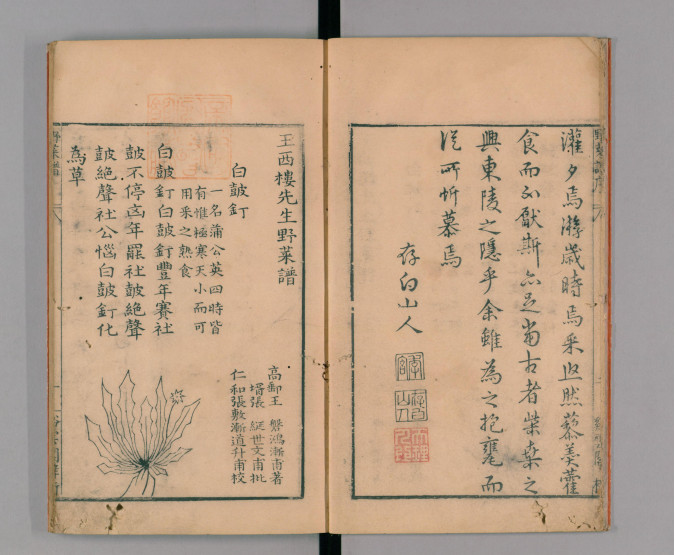 灌夕焉游歲時焉采烝然藜羹藿
食而不厭斯亦足當古者柴桑之
興東陵之隱乎余雖為之抱甕而
從所忻慕焉
存白山人
王西樓先生野菜譜
高郵王磐鴻漸甫著
壻張綖世文甫批
仁和張敷漸道升甫校
白皷釘
一名蒲公英四時皆
有惟極寒天小而可
用采之熟食
白皷釘白皷釘豐年賽社
皷不停凶年罷社皷絕聲
皷絕聲社公惱白皷釘化
為草